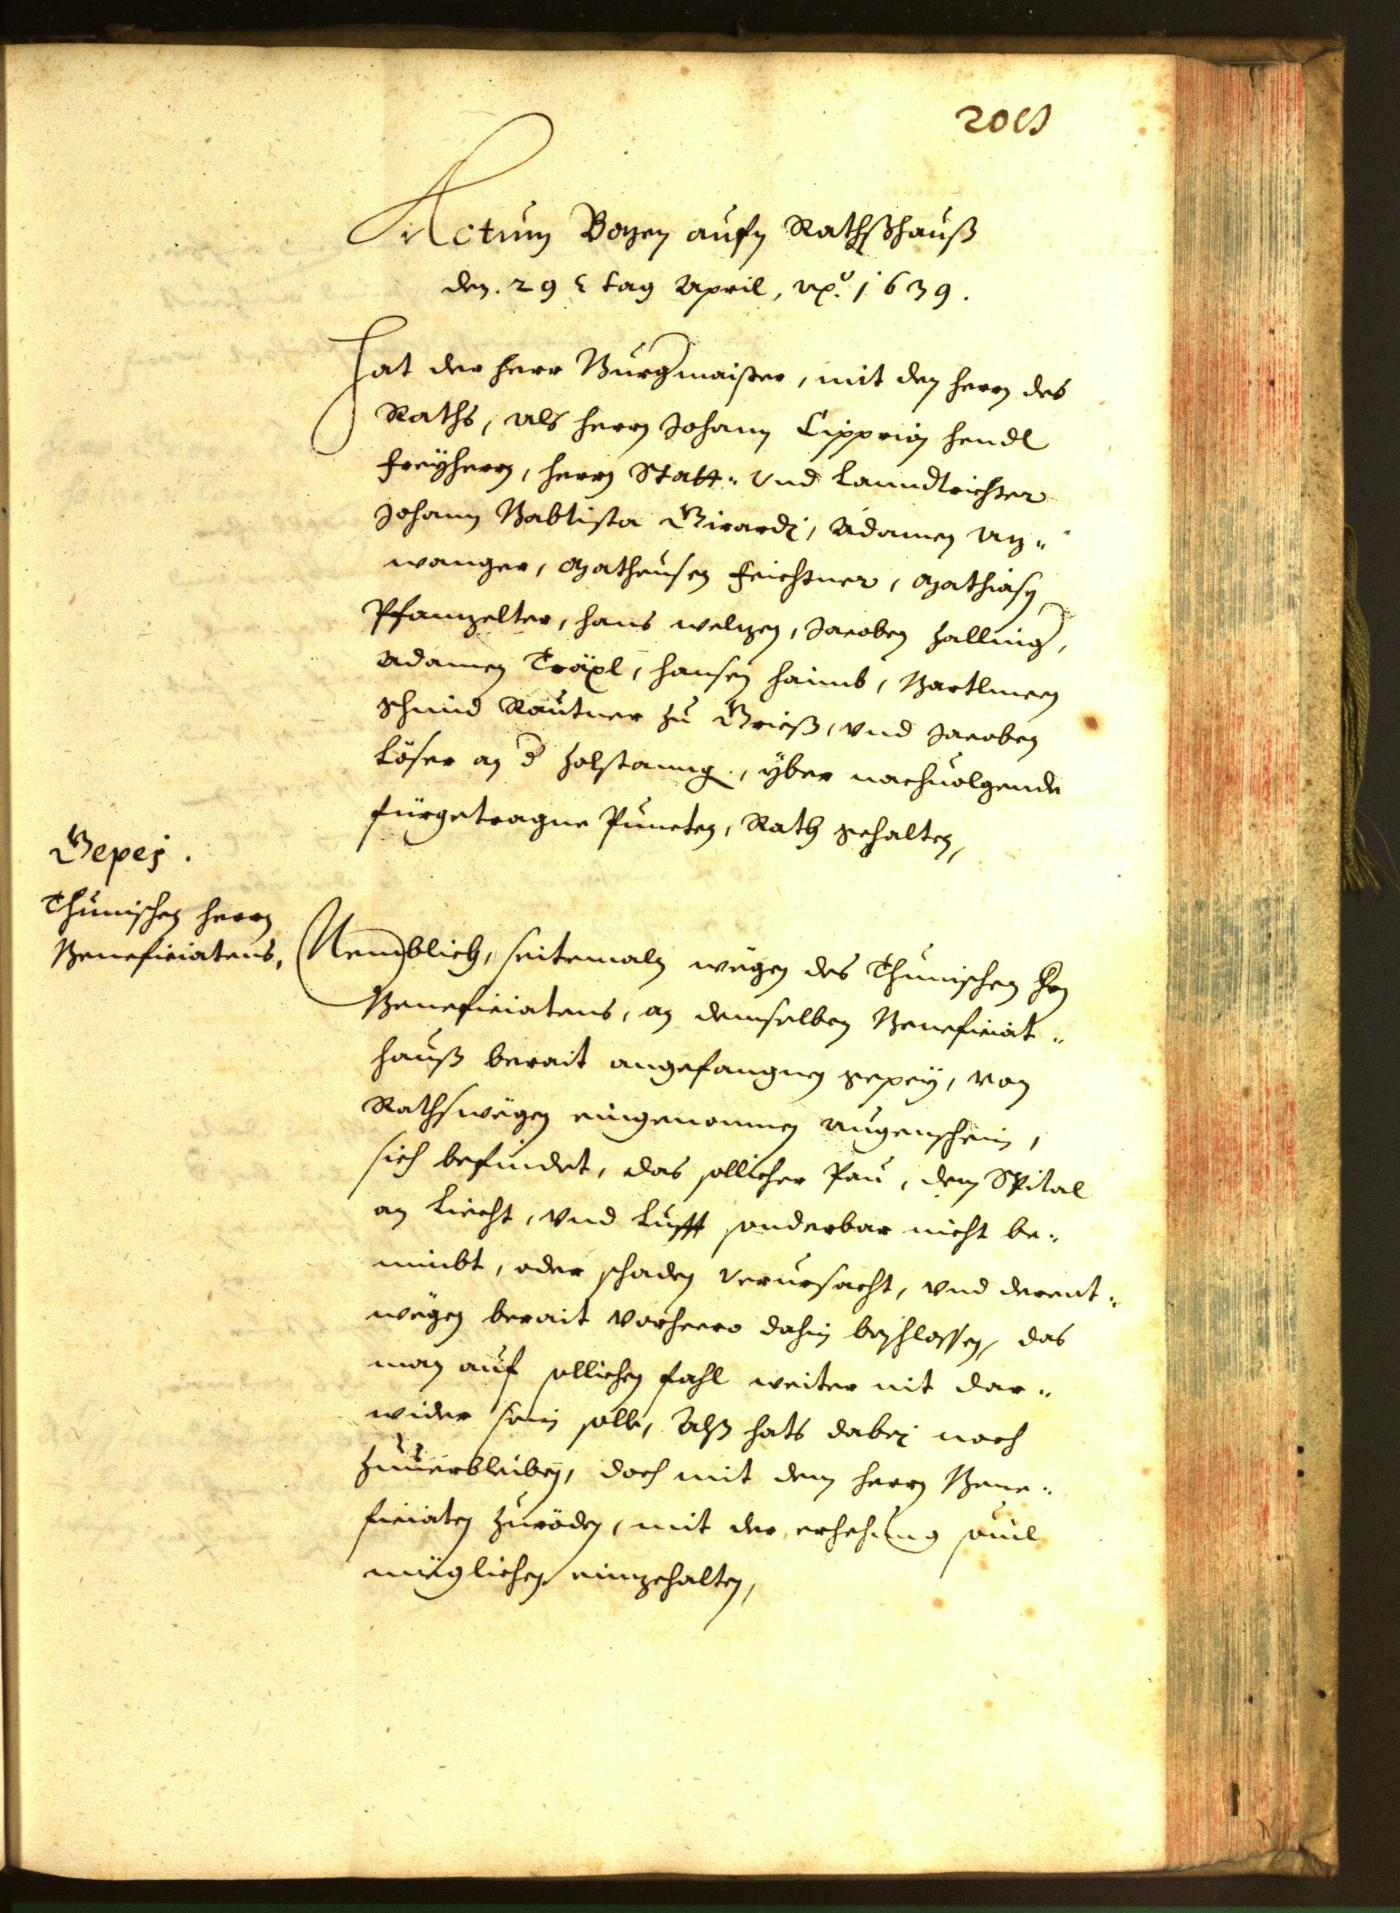 Actum Bozen aufn Rathßhauß
den. 29t tag April, Ao. 1639.
Hat der Herr Burgmaister, mit den herrn des
Raths, als herrn Johann Cipprian Hendl
Freyherrn, herrn Statt- und Lanndtrichter
Johann Babtista Girardi, Adamen An-
wanger, Matheusen Feichtner, Mathiasen
Pfanzelter, Hans Welzen, Jacoben Zalling,
Adamen Träxl, Hansen Haimb, Bartlmeen
Schmid Rautner zu Grieß, und Jacoben
Löser an d Zolstanng, yber nachuolgende
fürgetragne Puncten, Rath gehalten,
Gepej.
Thunischen herrn
Beneficiatens,
Nemblich, seitemaln wegen des Thunischen hrn
Beneficiatens, an demselben Beneficiat-
hauß berait angefangnen gepey, von
Raths wegen eingenommen augenschein,
sich befindet, das sollicher Pau, dem Spital
an Liecht, und Lufft sonderbar nicht be-
nimbt, oder schaden verursacht, und derent-
wegen berait vorheero dahin beschlossen, das
man auf sollichen fahl weiter nit dar-
wider sein solle, Alß hats dabej noch
zuuerbleiben, doch mit dem herrn Bene-
ficiaten zuröden, mit der erhehung souil
müglichen eingehalten,